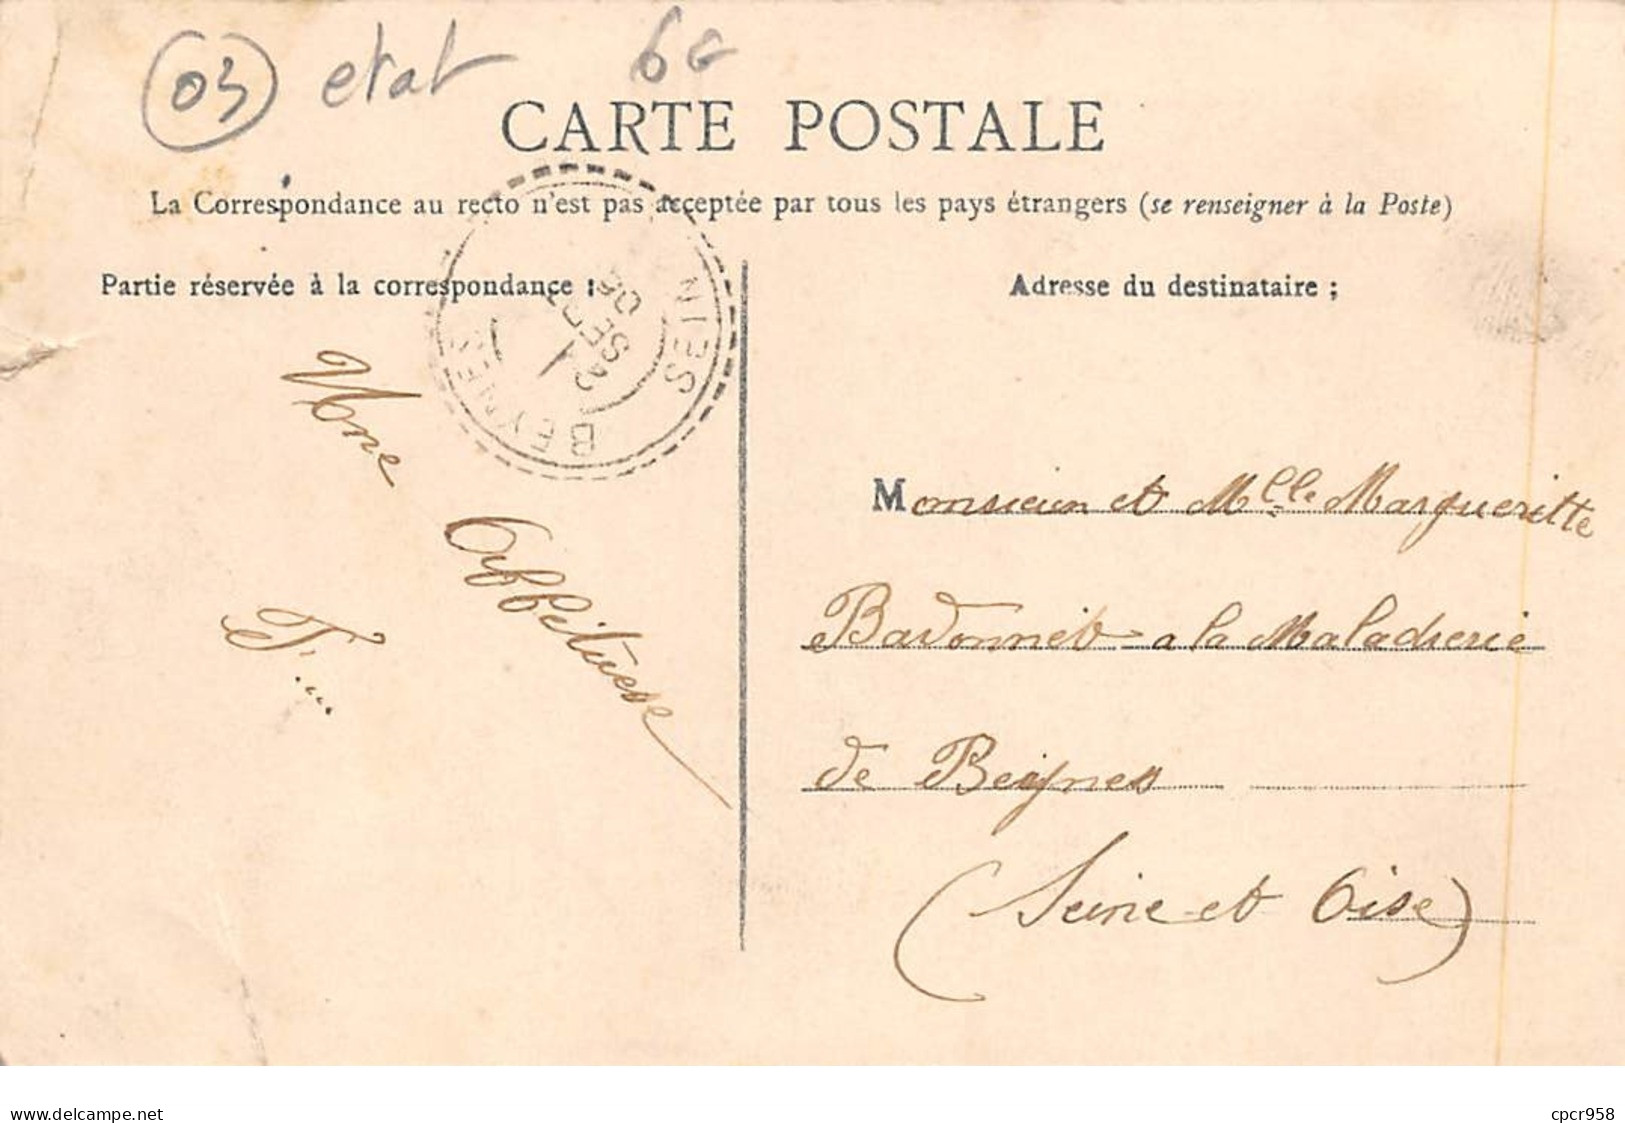 03 etat 6G
CARTE POSTALE
La Correspondance au recto n'est pas acceptée par tous les pays étrangers (se renseigner à la Poste)
Partie réservée à la correspondance :
Adresse du destinataire ;
BEYNES
SEINE
Une
Affétueuse
T....
Monsieur et Mlle Margueritte
Badonnet a la Maladrerie
de Beignes
(Seine et Oise)
www.delcampe.net
cpcr958